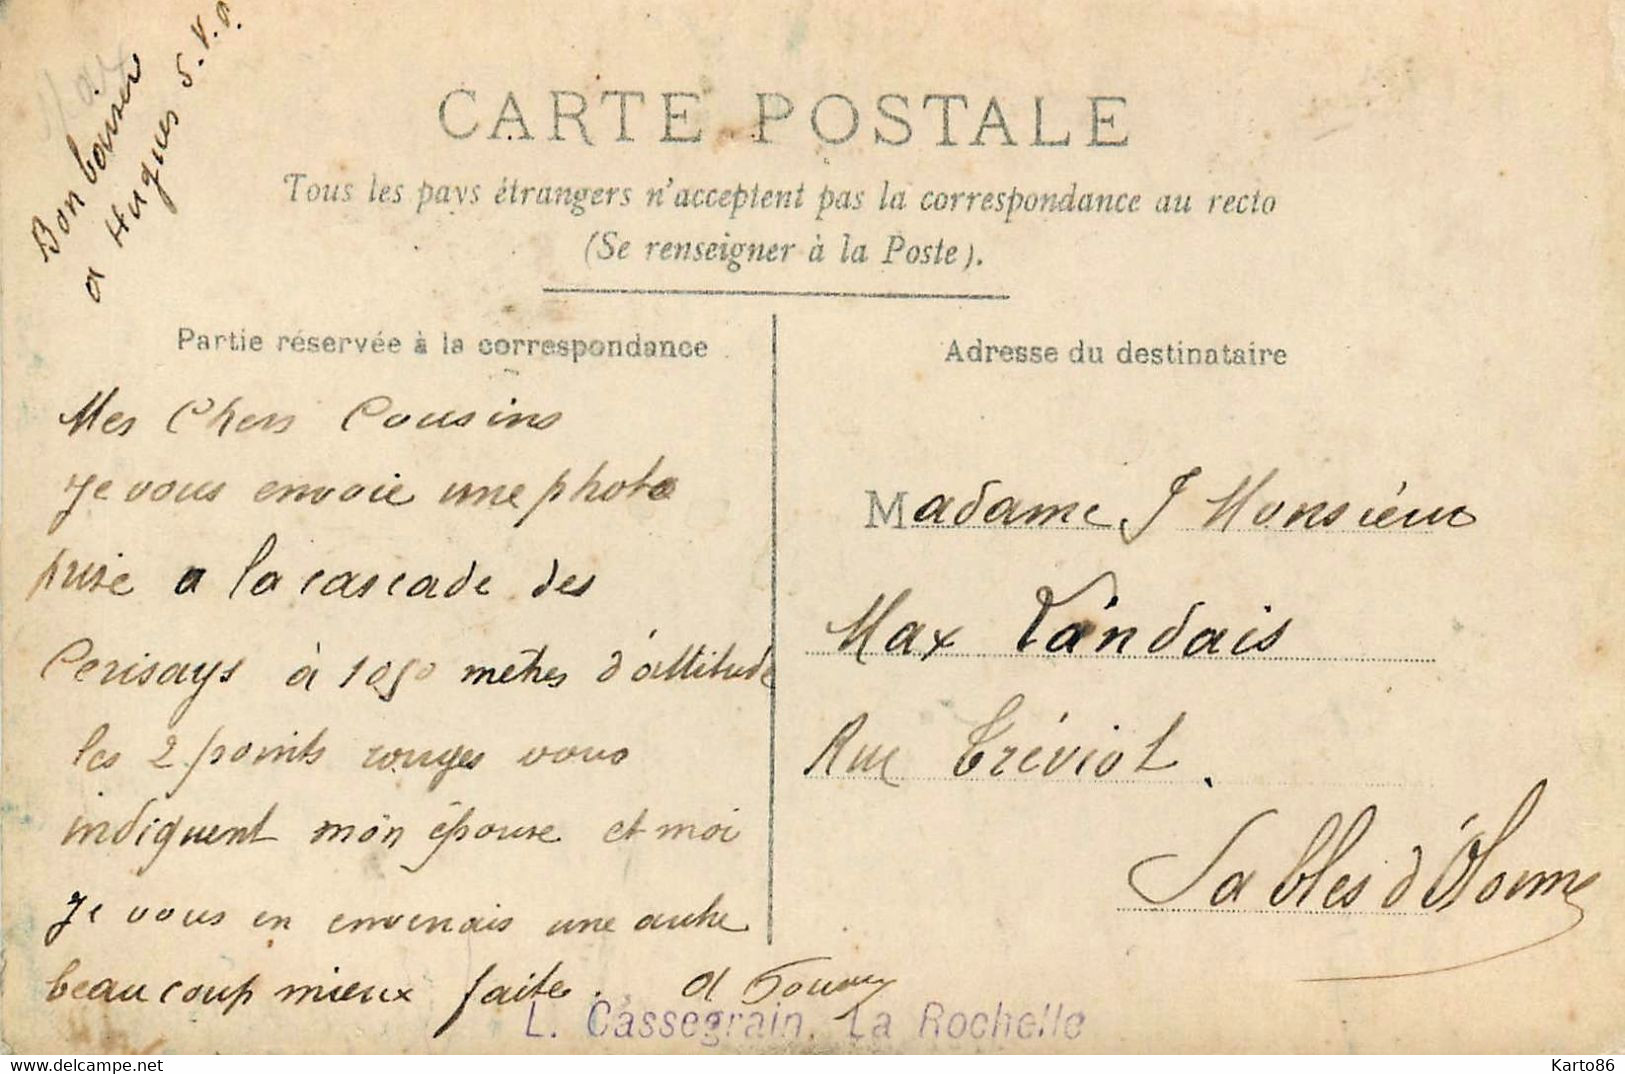 Bon baiser
a Hugues S.V.P.
CARTE POSTALE
Tous les pays étrangers n'acceptent pas la correspondance au recto
(Se renseigner à la Poste).
Partie réservée à la correspondance
Mes Chers Cousins
Je vous envoie une photo
prise a la cascade des
Cerisays à 1050 mètres d'altitude
les 2 points rouges vous
indiquent mon épouse et moi
Je vous en envenais une autre
beaucoup mieux faite.
Adresse du destinataire
Madame & Monsieur
Max Landais
Rue Tréviot.
Sables d'Olonne
L. Cassegrain. La Rochelle
delcampe.net
Karto86